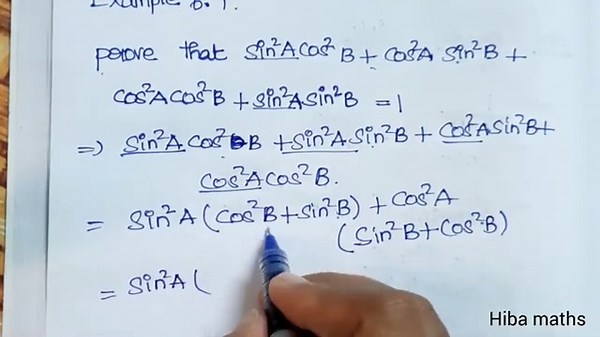 Example 6.1.
perove that Sin²A Cos²B + Cos²A Sin²B +
Cos²A Cos²B + Sin²A Sin²B = 1
⇒) Sin²A Cos²B + Sin²A Sin²B + Cos²A Sin²B +
Cos²A Cos²B.
= Sin²A (Cos²B + Sin²B) + Cos²A
(Sin²B + Cos²B)
= Sin²A (
Hiba maths